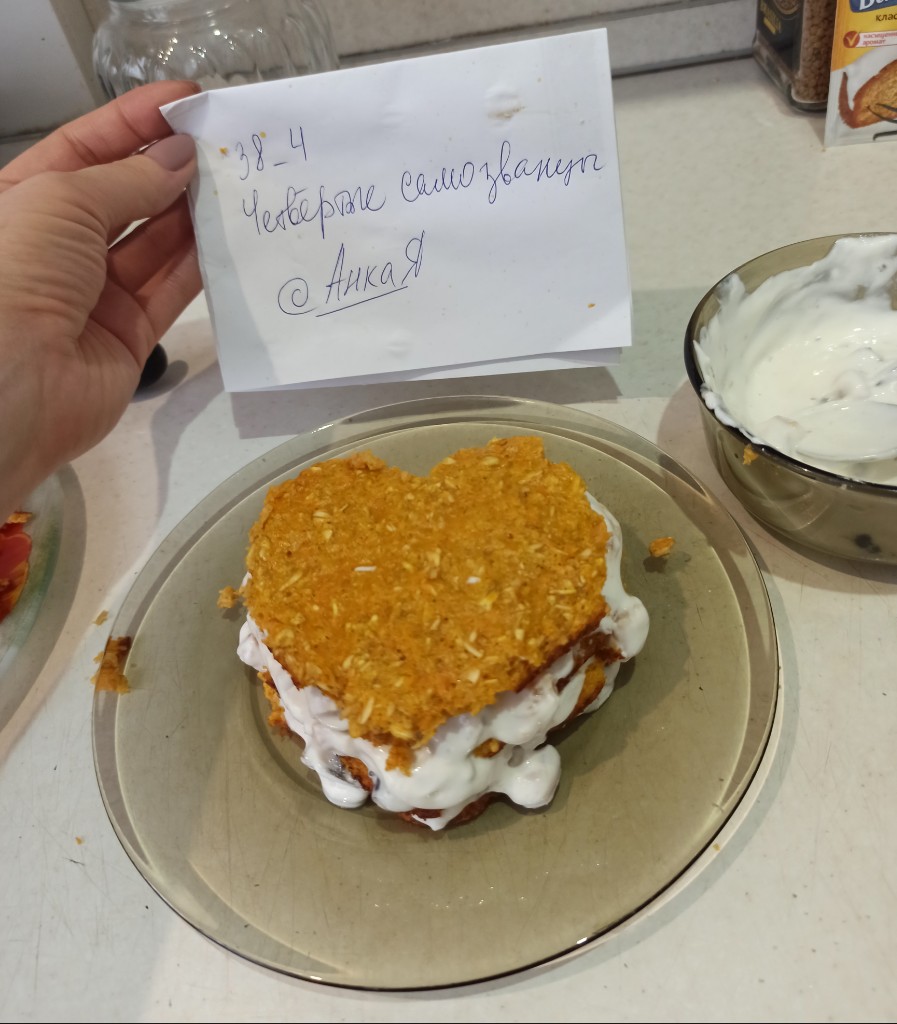 38_4
Четвёртые самозванцы
@АнкаЯ
клас